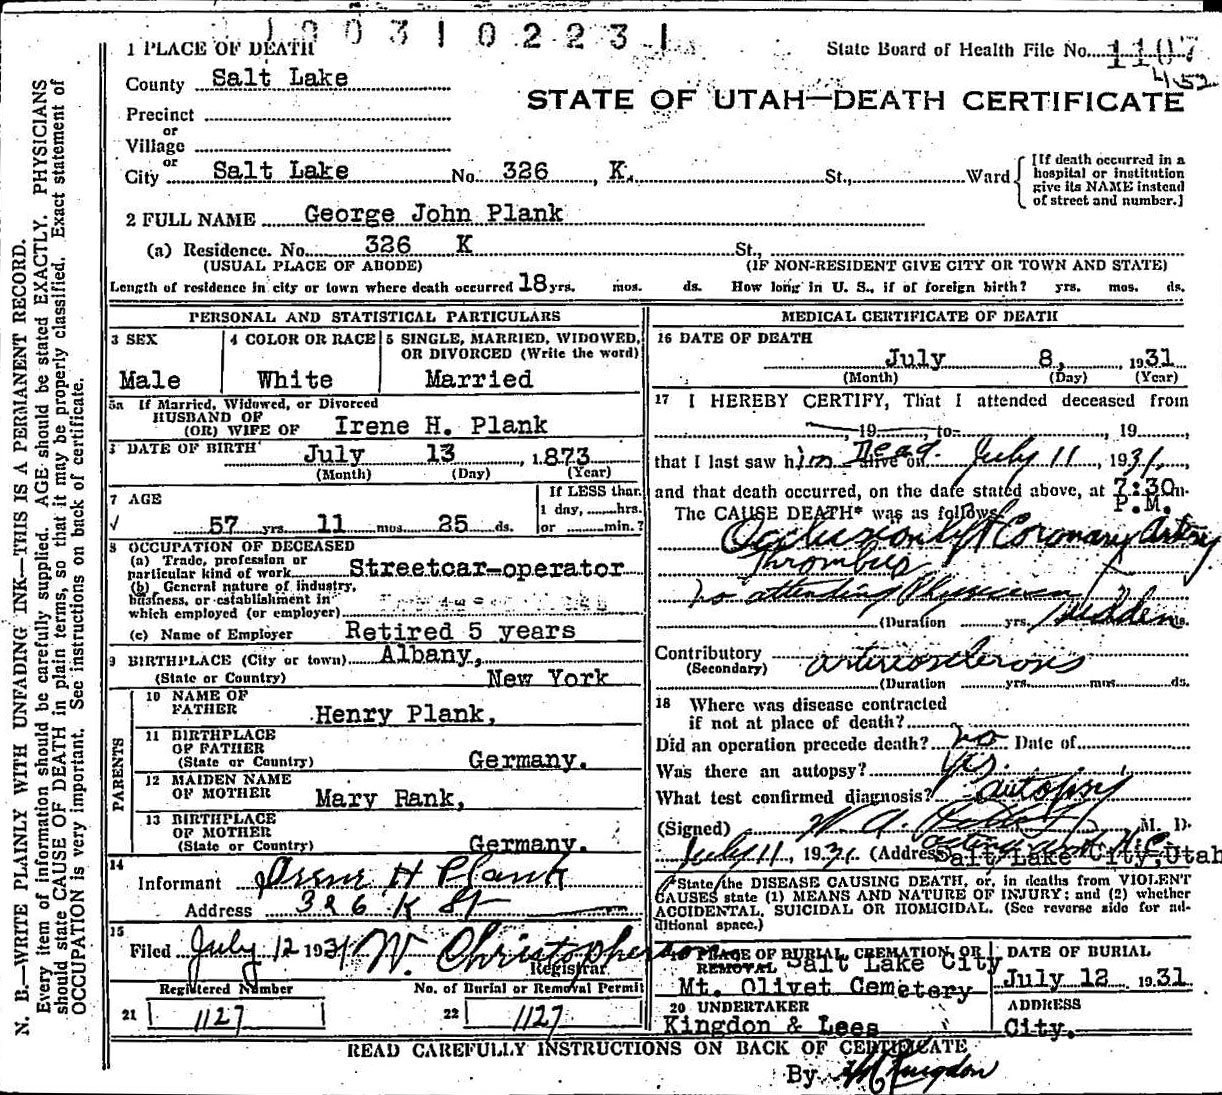 1003102231
1 PLACE OF DEATH
State Board of Health File No. 1107
452
County Salt Lake
STATE OF UTAH—DEATH CERTIFICATE
Precinct
or
Village
or
City Salt Lake No. 326, K. St., Ward
[If death occurred in a hospital or institution give its NAME instead of street and number.]
2 FULL NAME George John Plank
(a) Residence. No. 326 K St.,
(USUAL PLACE OF ABODE) (IF NON-RESIDENT GIVE CITY OR TOWN AND STATE)
Length of residence in city or town where death occurred 18 yrs. mos. ds. How long in U. S., if of foreign birth? yrs. mos. ds.
PERSONAL AND STATISTICAL PARTICULARS
3 SEX
Male
4 COLOR OR RACE
White
5 SINGLE, MARRIED, WIDOWED,
OR DIVORCED (Write the word)
Married
5a If Married, Widowed, or Divorced
HUSBAND OF
(OR) WIFE OF Irene H. Plank
DATE OF BIRTH
July 13, 1873
(Month) (Day) (Year)
7 AGE
57 yrs. 11 mos. 25 ds.
If LESS than
1 day, hrs.
or min.?
8 OCCUPATION OF DECEASED
(a) Trade, profession or
particular kind of work Streetcar-operator
(b) General nature of industry,
business, or establishment in
which employed (or employer)
(c) Name of Employer Retired 5 years
9 BIRTHPLACE (City or town) Albany,
(State or Country) New York
PARENTS
10 NAME OF
FATHER Henry Plank,
11 BIRTHPLACE
OF FATHER
(State or Country) Germany.
12 MAIDEN NAME
OF MOTHER Mary Rank,
13 BIRTHPLACE
OF MOTHER
(State or Country) Germany.
14
Informant Irene H Plank
Address 326 K St
15
Filed July 12 1931 W. Christopherson
Registrar
Registered Number No. of Burial or Removal Permit
21 1127 22 1127
MEDICAL CERTIFICATE OF DEATH
16 DATE OF DEATH
July 8, 1931
(Month) (Day) (Year)
17 I HEREBY CERTIFY, That I attended deceased from
, 19 , to , 19 ,
that I last saw him Dead alive on July 11, 1931,
and that death occurred, on the date stated above, at 7:30 m.
P.M.
The CAUSE DEATH* was as follows:
Occlusion left Coronary Artery
Thrombus
no attending Physician
(Duration yrs. Sudden ds.
Contributory arteriosclerosis
(Secondary)
(Duration yrs. mos. ds.
18 Where was disease contracted
if not at place of death?
Did an operation precede death? no Date of
Was there an autopsy? Yes.
What test confirmed diagnosis? autopsy
(Signed) W. A. M. D.
July 11, 1931. (Address) Salt Lake City, Utah
*State the DISEASE CAUSING DEATH, or, in deaths from VIOLENT
CAUSES state (1) MEANS AND NATURE OF INJURY; and (2) whether
ACCIDENTAL, SUICIDAL OR HOMICIDAL. (See reverse side for additional space.)
19 PLACE OF BURIAL CREMATION, OR
REMOVAL Salt Lake City
Mt. Olivet Cemetery
DATE OF BURIAL
July 12 1931
20 UNDERTAKER
Kingdon & Lees
ADDRESS
City.
READ CAREFULLY INSTRUCTIONS ON BACK OF CERTIFICATE
By Kingdon
N. B.—WRITE PLAINLY WITH UNFADING INK—THIS IS A PERMANENT RECORD.
Every item of information should be carefully supplied. AGE should be stated EXACTLY. PHYSICIANS
should state CAUSE OF DEATH in plain terms, so that it may be properly classified. Exact statement of
OCCUPATION is very important. See instructions on back of certificate.